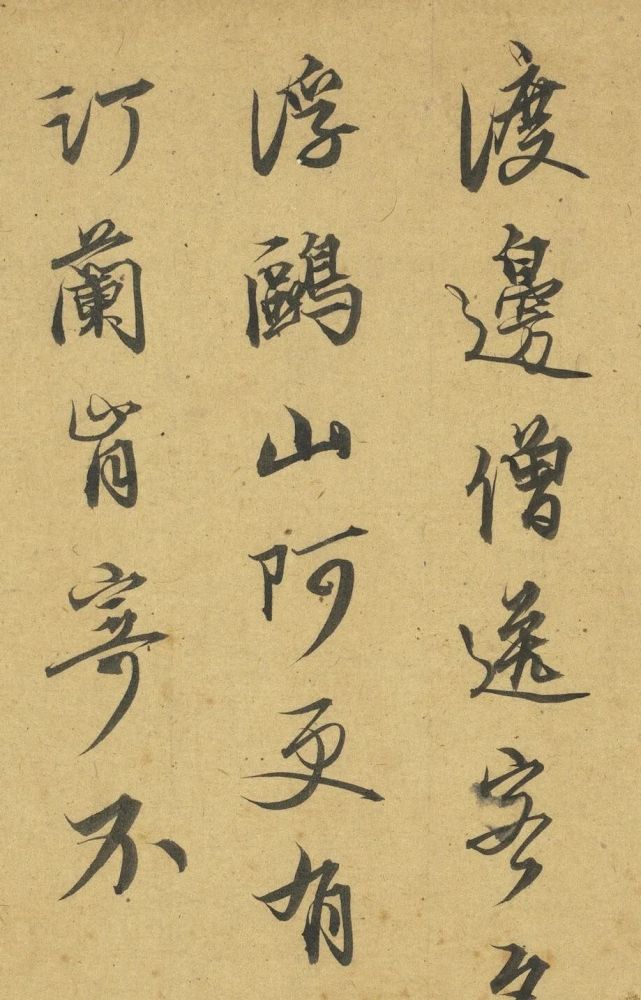 渡邊僧送客
浮鷗山阿更有
汀蘭肯寄不